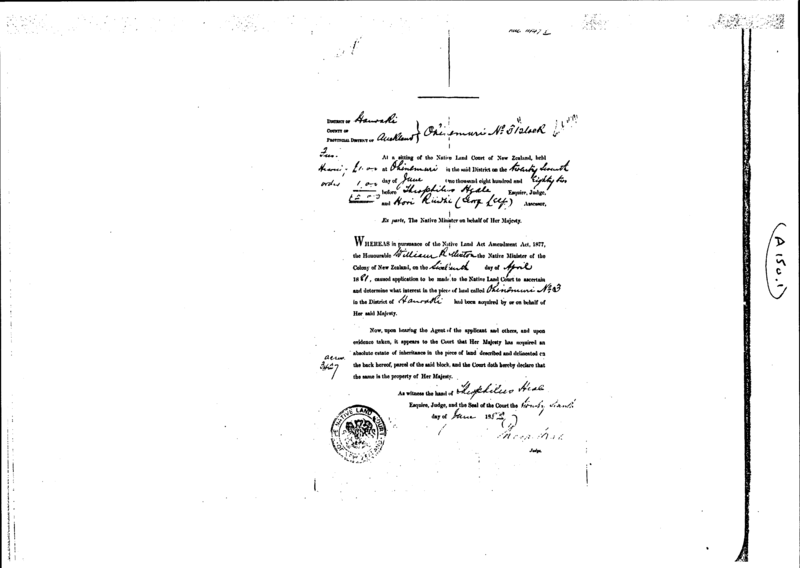 DISTRICT OF Hauraki
COUNTY OF
PROVINCIAL DISTRICT OF Auckland } Ohinemuri No 3 Block
At a sitting of the Native Land Court of New Zealand, held
Hearing £1.0.0 at Ohinemuri in the said District on the Twenty Seventh
order 1.0.0 day of June One thousand eight hundred and Eighty two
before Theophilus Heale Esquire, Judge,
and Hori Assessor,
Ex parte, The Native Minister on behalf of Her Majesty.
WHEREAS in pursuance of the Native Land Act Amendment Act, 1877,
the Honourable William Rolleston the Native Minister of the
Colony of New Zealand, on the day of April
1881, caused application to be made to the Native Land Court to ascertain
and determine what interest in the piece of land called Ohinemuri No 3
in the District of Hauraki had been acquired by or on behalf of
Her said Majesty.
Now, upon hearing the Agent of the applicant and others, and upon
evidence taken, it appears to the Court that Her Majesty has acquired an
absolute estate of inheritance in the piece of land described and delineated on
acres the back hereof, parcel of the said block, and the Court doth hereby declare that
3427 the same is the property of Her Majesty.
As witness the hand of Theophilus Heale
Esquire, Judge, and the Seal of the Court the Twenty Seventh
day of June 1882
Judge.
NATIVE LAND COURT
NEW ZEALAND
(A 150.1)